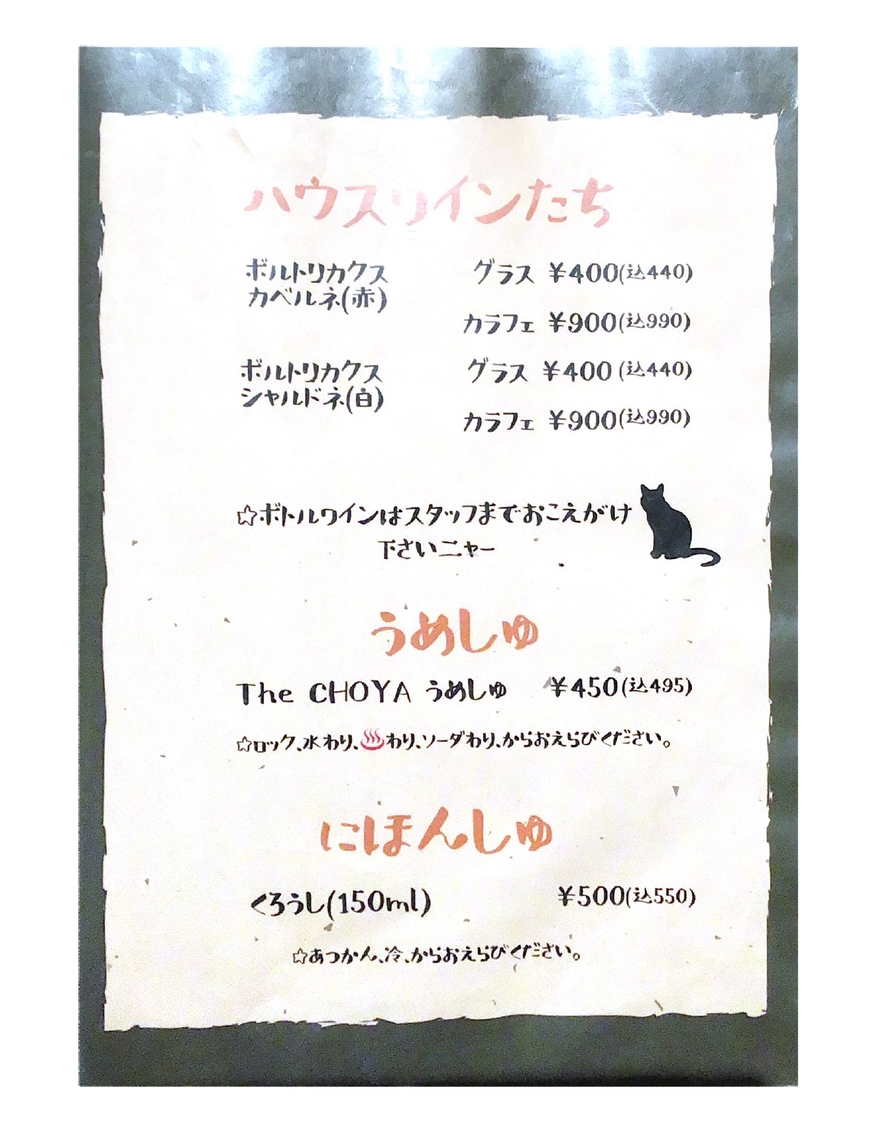 ハウスワインたち
ボルトリカクス
カベルネ(赤)
グラス ¥400(込440)
カラフェ ¥900(込990)
ボルトリカクス
シャルドネ(白)
グラス ¥400(込440)
カラフェ ¥900(込990)
☆ボトルワインはスタッフまでおこえがけ
下さいニャー
うめしゅ
The CHOYA うめしゅ ¥450(込495)
☆ロック、水わり、♨わり、ソーダわり、からおえらびください。
にほんしゅ
くろうし(150ml) ¥500(込550)
☆あつかん、冷、からおえらびください。